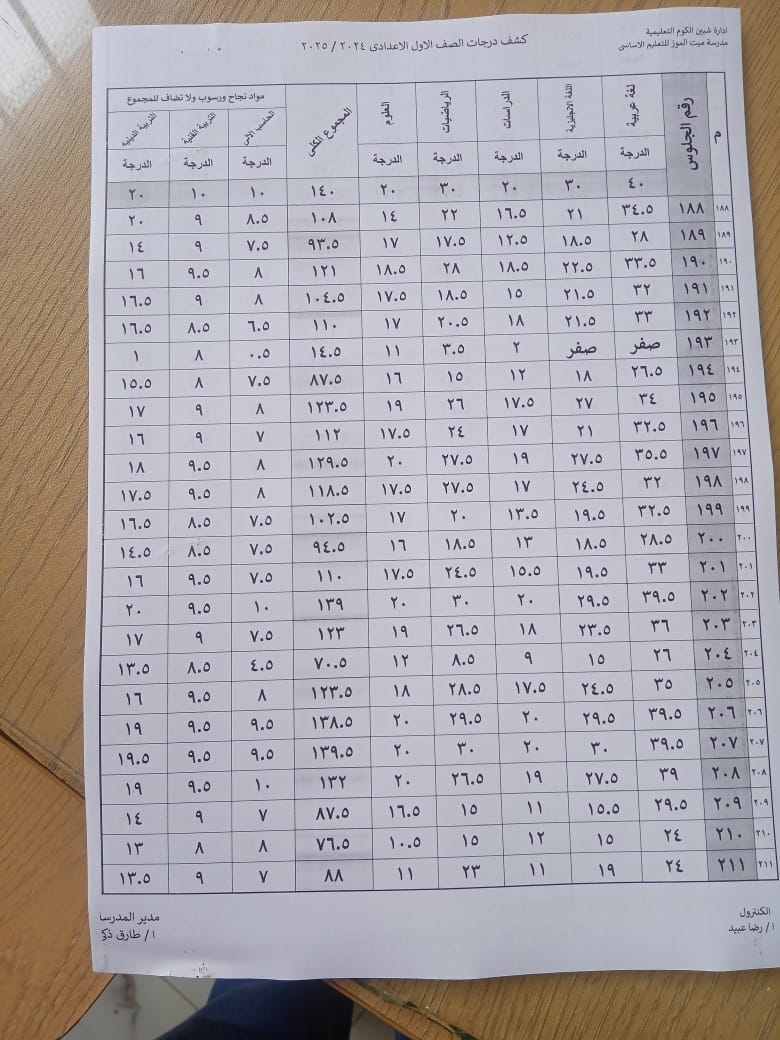 ادارة شبين الكوم التعليمية
مدرسة ميت الموز للتعليم الاساسى
كشف درجات الصف الاول الاعدادى ٢٠٢٤ / ٢٠٢٥
م رقم الجلوس لغة عربية اللغة الانجليزية الدراسات الرياضيات العلوم المجموع الكلى مواد نجاح ورسوب ولا تضاف للمجموع
الحاسب الالى التربية الفنية التربية الدينية
الدرجة الدرجة الدرجة الدرجة الدرجة الدرجة الدرجة الدرجة
٤٠ ٣٠ ٢٠ ٣٠ ٢٠ ١٤٠ ١٠ ١٠ ٢٠
١٨٨ ١٨٨ ٣٤.٥ ٢١ ١٦.٥ ٢٢ ١٤ ١٠٨ ٨.٥ ٩ ٢٠
١٨٩ ١٨٩ ٢٨ ١٨.٥ ١٢.٥ ١٧.٥ ١٧ ٩٣.٥ ٧.٥ ٩ ١٤
١٩٠ ١٩٠ ٣٣.٥ ٢٢.٥ ١٨.٥ ٢٨ ١٨.٥ ١٢١ ٨ ٩.٥ ١٦
١٩١ ١٩١ ٣٢ ٢١.٥ ١٥ ١٨.٥ ١٧.٥ ١٠٤.٥ ٨ ٩ ١٦.٥
١٩٢ ١٩٢ ٣٣ ٢١.٥ ١٨ ٢٠.٥ ١٧ ١١٠ ٦.٥ ٨.٥ ١٦.٥
١٩٣ ١٩٣ صفر صفر ٢ ٣.٥ ١١ ١٤.٥ ٠.٥ ٨ ١
١٩٤ ١٩٤ ٢٦.٥ ١٨ ١٢ ١٥ ١٦ ٨٧.٥ ٧.٥ ٨ ١٥.٥
١٩٥ ١٩٥ ٣٤ ٢٧ ١٧.٥ ٢٦ ١٩ ١٢٣.٥ ٨ ٩ ١٧
١٩٦ ١٩٦ ٣٢.٥ ٢١ ١٧ ٢٤ ١٧.٥ ١١٢ ٧ ٩ ١٦
١٩٧ ١٩٧ ٣٥.٥ ٢٧.٥ ١٩ ٢٧.٥ ٢٠ ١٢٩.٥ ٨ ٩.٥ ١٨
١٩٨ ١٩٨ ٣٢ ٢٤.٥ ١٧ ٢٧.٥ ١٧.٥ ١١٨.٥ ٨ ٩.٥ ١٧.٥
١٩٩ ١٩٩ ٣٢.٥ ١٩.٥ ١٣.٥ ٢٠ ١٧ ١٠٢.٥ ٧.٥ ٨.٥ ١٦.٥
٢٠٠ ٢٠٠ ٢٨.٥ ١٨.٥ ١٣ ١٨.٥ ١٦ ٩٤.٥ ٧.٥ ٨.٥ ١٤.٥
٢٠١ ٢٠١ ٣٣ ١٩.٥ ١٥.٥ ٢٤.٥ ١٧.٥ ١١٠ ٧.٥ ٩.٥ ١٦
٢٠٢ ٢٠٢ ٣٩.٥ ٢٩.٥ ٢٠ ٣٠ ٢٠ ١٣٩ ١٠ ٩.٥ ٢٠
٢٠٣ ٢٠٣ ٣٦ ٢٣.٥ ١٨ ٢٦.٥ ١٩ ١٢٣ ٧.٥ ٩ ١٧
٢٠٤ ٢٠٤ ٢٦ ١٥ ٩ ٨.٥ ١٢ ٧٠.٥ ٤.٥ ٨.٥ ١٣.٥
٢٠٥ ٢٠٥ ٣٥ ٢٤.٥ ١٧.٥ ٢٨.٥ ١٨ ١٢٣.٥ ٨ ٩.٥ ١٦
٢٠٦ ٢٠٦ ٣٩.٥ ٢٩.٥ ٢٠ ٢٩.٥ ٢٠ ١٣٨.٥ ٩.٥ ٩.٥ ١٩
٢٠٧ ٢٠٧ ٣٩.٥ ٣٠ ٢٠ ٣٠ ٢٠ ١٣٩.٥ ٩.٥ ٩.٥ ١٩.٥
٢٠٨ ٢٠٨ ٣٩ ٢٧.٥ ١٩ ٢٦.٥ ٢٠ ١٣٢ ١٠ ٩.٥ ١٩
٢٠٩ ٢٠٩ ٢٩.٥ ١٥.٥ ١١ ١٥ ١٦.٥ ٨٧.٥ ٧ ٩ ١٤
٢١٠ ٢١٠ ٢٤ ١٥ ١٢ ١٥ ١٠.٥ ٧٦.٥ ٨ ٨ ١٣
٢١١ ٢١١ ٢٤ ١٩ ١١ ٢٣ ١١ ٨٨ ٧ ٩ ١٣.٥
الكنترول مدير المدرسا
ا/ رضا عبيد ا/ طارق ذكى